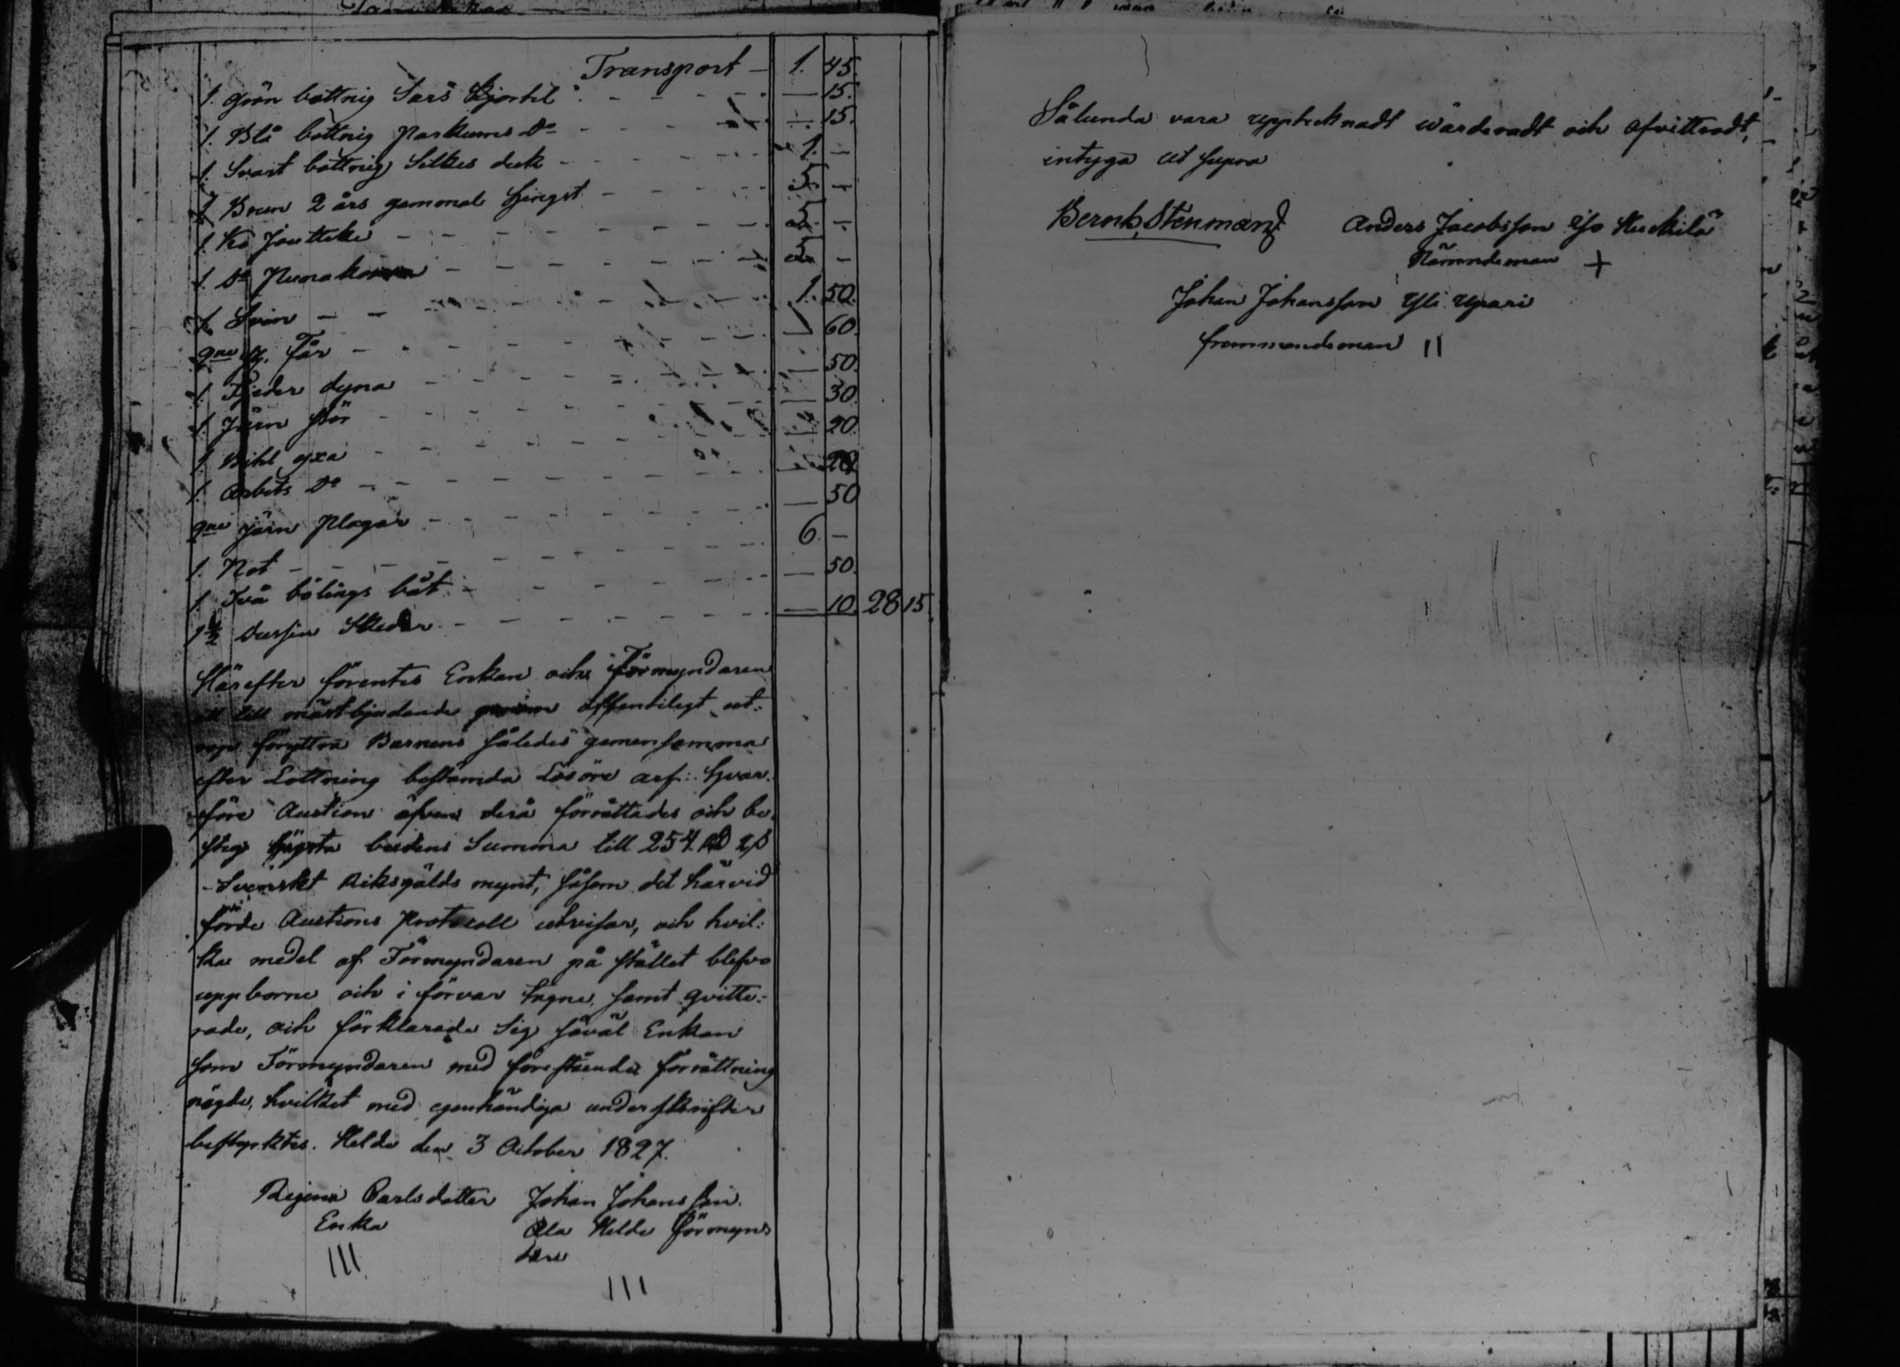 Transport — 1. 45.
1. Grön bottnig Sars Kjortel — 15.
1. Blå bottnig Parkums Do — 15.
1. Svart bottnig Silkes duk 1. —
1 Brun 2 års gammal hingst 5. —
1. Ko Jouttike 5. —
1. Do Punakorva 5. —
1. Svin 1. 50.
st. Får — 60.
1. Fjeder dyna — 50.
1. Järn stör — 30.
1. Bihl yxa — 20.
1. Arbets Do
Järn Plogar — 50
1. Not 6. —
1. Två bölings båt — 50.
1 1/2 dussin Skedar — 10. 28 15.
Härefter förentes Enkan och Förmyndaren
att till mästbjudande offentligt ut-
rop föryttra Barnens således gemensamma
efter Lottning bestämda Lösöre arf: hvar-
före Auction äfven derå förrättades och be-
steg högsta budens Summa till 254 RD
Svenskt Riksgälds mynt, såsom det härvid
förde Auctions Protocoll utvisar, och hvil-
ka medel af Förmyndaren på stället blefvo
uppborne och i förvar tagne, samt qvitte-
rade, och förklarade Sig såväl Enkan
som Förmyndaren med förestående förrättning
nögde, hvilket med egenhändiga underskrifter
bestyrktes. Helde den 3 October 1827.
Regina Carlsdotter Johan Johansson
Enka Ala Helde förmyn-
dare
III III
Sålunda vara upptecknadt wärderadt och afvittradt,
intyga Ut supra
Bernh. Stenman Anders Jacobsson Yso Kuckila
Nämndeman +
Johan Johansson Yli Upari
frammandeman II